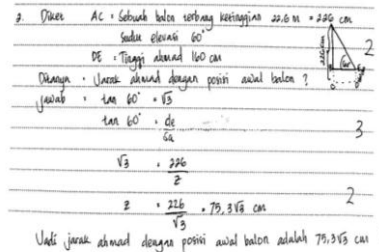 2. Diket AC : Sebuah balon terbang ketinggian 22.6 m = 226 cm
Sudu elevasi 60°
DE : Tinggi ahmad 160 cm
2
Ditanya : Jarak ahmad dengan posisi awal balon ?
Jawab : tan 60° = √3
tan 60° = de/sa
3
√3 = 226/z
z = 226/√3 = 75,3√3 cm
2
Jadi jarak ahmad dengan posisi awal balon adalah 75,3√3 cm